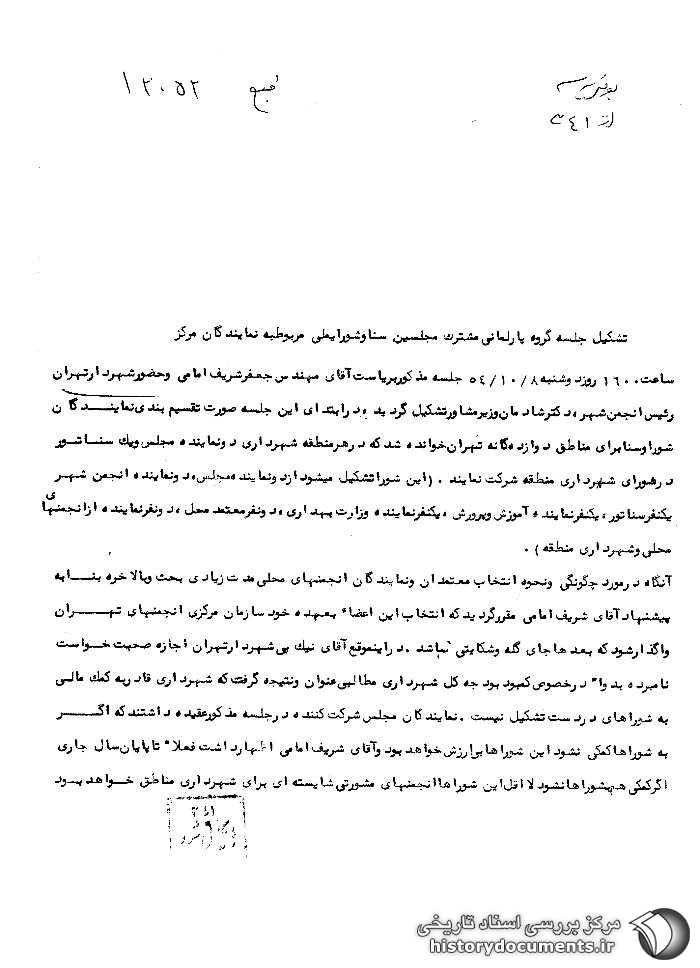 از ۳٤۱
منبع ۱۲۰۵۲
تشکیل جلسه گروه پارلمانی مشترك مجلسین سنا و شورایملی مربوط به نمایندگان مرکز
ساعت ۱٦۰۰ روز دوشنبه ۵٤/۱۰/۸ جلسه مذکور بریاست آقای مهندس جعفر شریف امامی و حضور شهردار تهران
رئیس انجمن شهر، دکتر شادمان وزیر مشاور تشکیل گردید . در ابتدای این جلسه صورت تقسیم بندی نمایندگان
شورا و سنا برای مناطق دوازده گانه تهران خوانده شد که در هر منطقه شهرداری دو نماینده مجلس ویك سناتور
در شورای شهرداری منطقه شرکت نمایند . (این شورا تشکیل میشود از دو نماینده مجلس، دو نماینده انجمن شهر
یکنفر سناتور ، یکنفر نماینده آموزش و پرورش ، یکنفر نماینده وزارت بهداری ، دو نفر معتمد محل ، دو نفر نماینده از انجمنهای
محلی و شهرداری منطقه ) .
آنگاه در مورد چگونگی ونحوه انتخاب معتمدان ونمایندگان انجمنهای محلی مدت زیادی بحث وبالاخره بنا به
پیشنهاد آقای شریف امامی مقرر گردید که انتخاب این اعضاء بعهده خود سازمان مرکزی انجمنهای تهران
واگذار شود که بعد ها جای گله وشکایتی نباشد . در اینموقع آقای نیك پی شهردار تهران اجازه صحبت خواست
نامبرده بدوا" در خصوص کمبود بودجه کل شهرداری مطالبی عنوان ونتیجه گرفت که شهرداری قادر به کمك مالی
به شوراهای در دست تشکیل نیست . نمایندگان مجلس شرکت کننده در جلسه مذکور عقیده داشتند که اگر
به شوراها کمکی نشود این شوراها بی ارزش خواهد بود وآقای شریف امامی اظهار داشت فعلا" تا پایان سال جاری
اگر کمکی هم بشوراها نشود لااقل این شوراها انجمنهای مشورتی شایسته ای برای شهرداری مناطق خواهد بود
مرکز بررسی اسناد تاریخی
historydocuments.ir